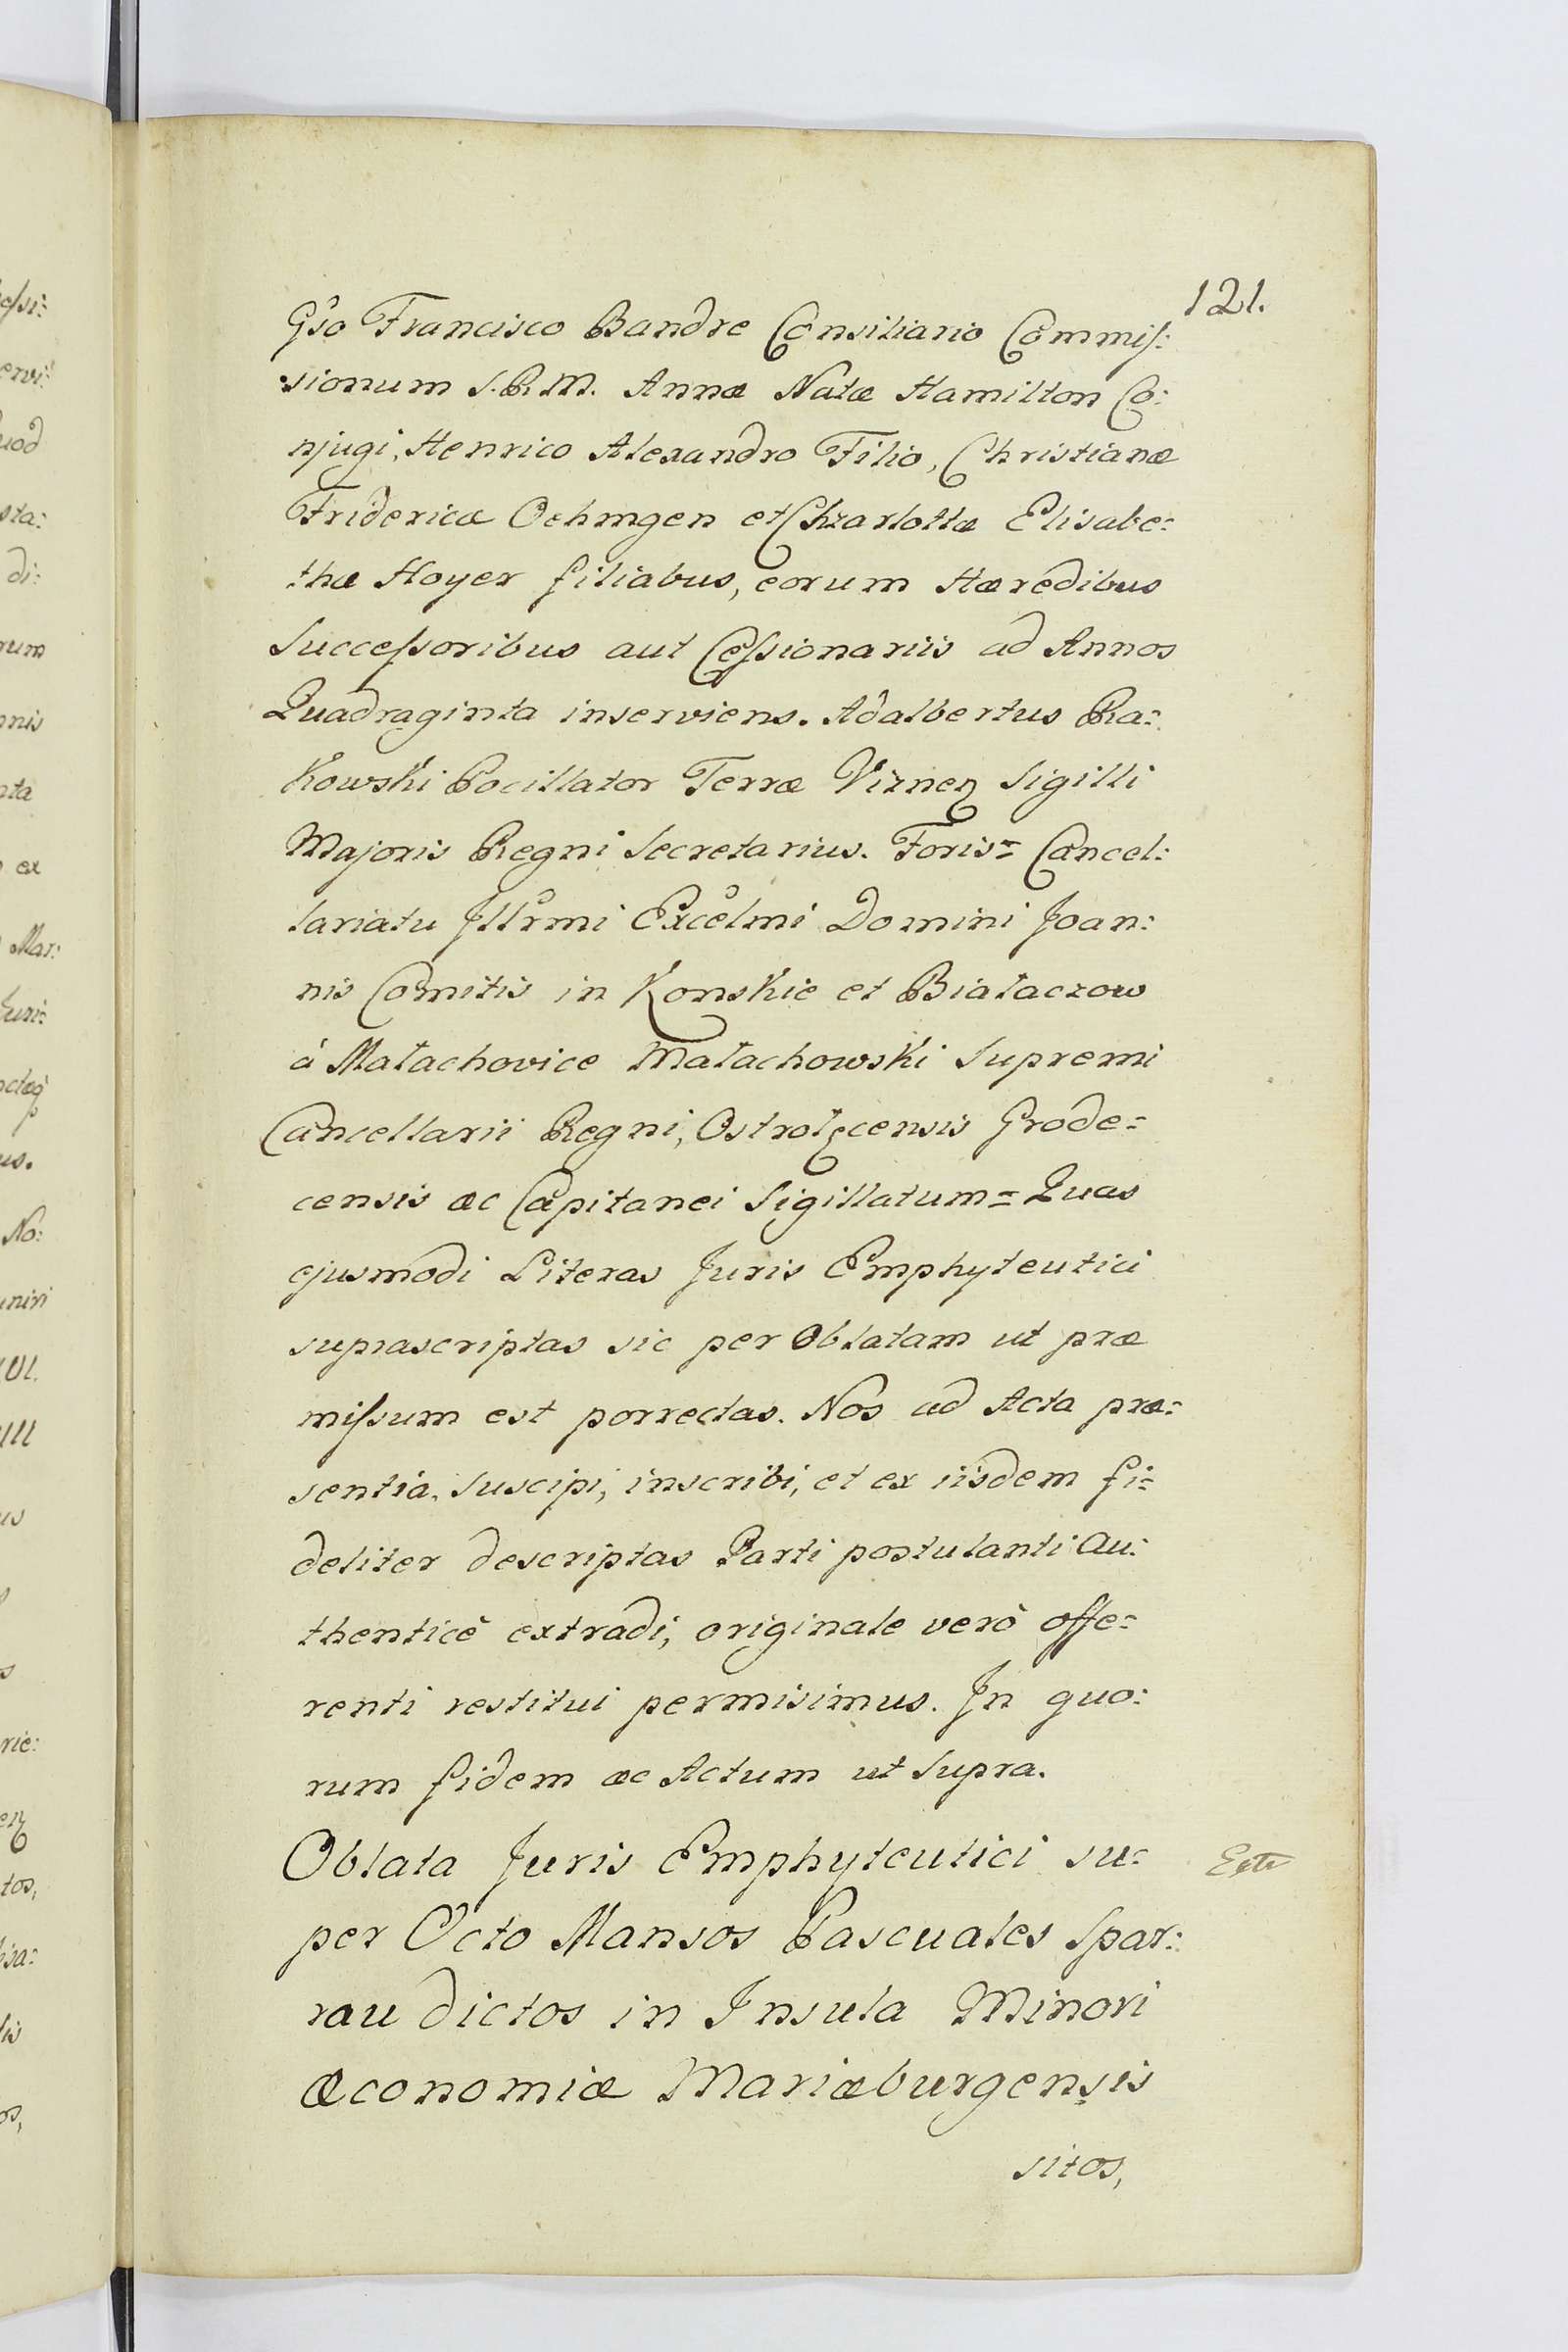 121.
Gso Francisco Bandre Consiliario Commis:
sionum S.R.M. Annæ Natæ Hamilton Co:
njugi, Henrico Alexandro Filio, Christianæ
Fridericæ Oehmgen et Charlottæ Elisabe=
thæ Hoyer filiabus, eorum Hæredibus
Successoribus aut Cessionariis ad Annos
Quadraginta inserviens. Adalbertus Ra=
kowski Pocillator Terræ Viznen Sigilli
Majoris Regni Secretarius. Foris= Cancel:
lariatu Jllrmi Excelmi Domini Joan:
nis Comitis in Konskie et Białaczow
à Małachovice Małachowski Supremi
Cancellarii Regni, Ostrołęcensis Grode=
censis æc Capitanei Sigillatum= Quas
ejusmodi Literas Juris Emphyteutici
suprascriptas sic per Oblatam ut præ
missum est porrectas. Nos ad Acta præ=
sentia, suscipi, inscribi, et ex iisdem fi=
deliter descriptas Parti postulanti Au:
thenticè extradi, originale verò offe=
renti restitui permisimus. Jn quo:
rum fidem æc Actum ut Supra.
Oblata Juris Emphyteutici su=
per Octo Mansos Pascuales Spar:
rau dictos in Insula Minori
Œconomiæ Mariæburgensis
sitos,